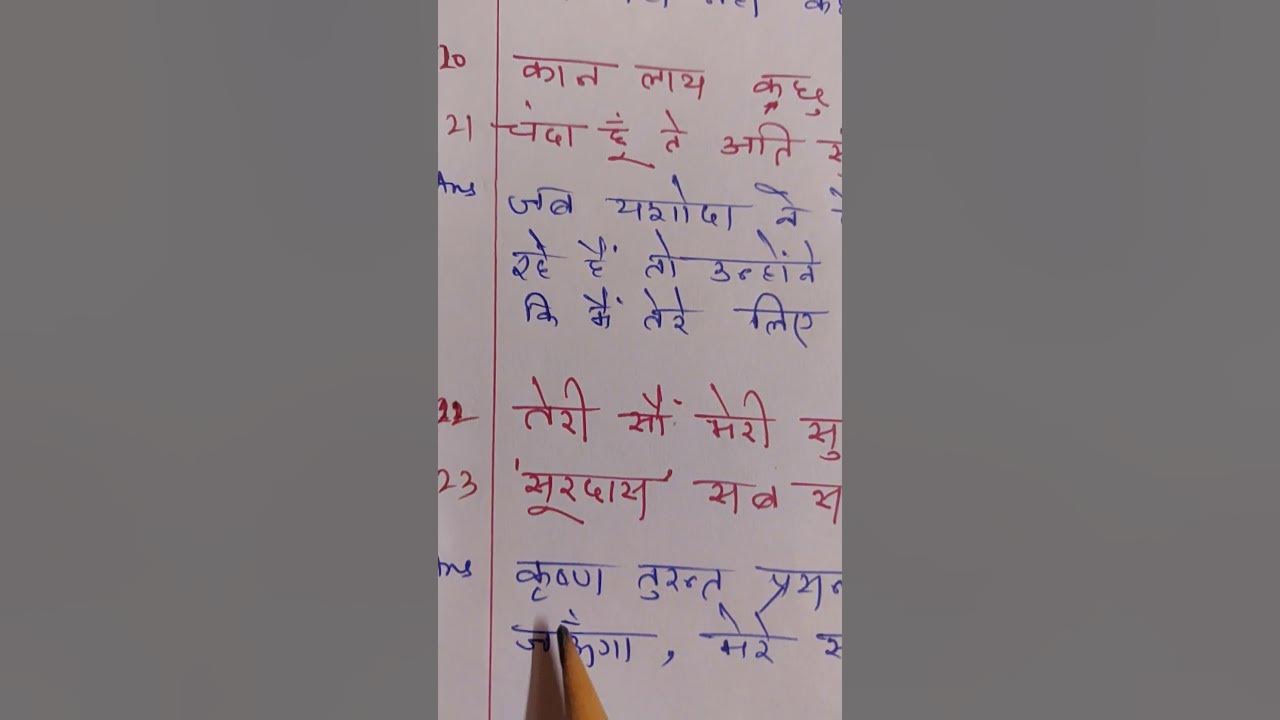 20 कान लाय कछु
21 चंदा हूं ते अति
Ans जब यशोदा ने
रहे हैं तो उन्होंने
कि मैं तेरे लिए
22 तेरी सौं मेरी सु
23 'सूरदास' सब स
Ans कृष्ण तुरन्त प्रसन
जाऊँगा, मेरे स